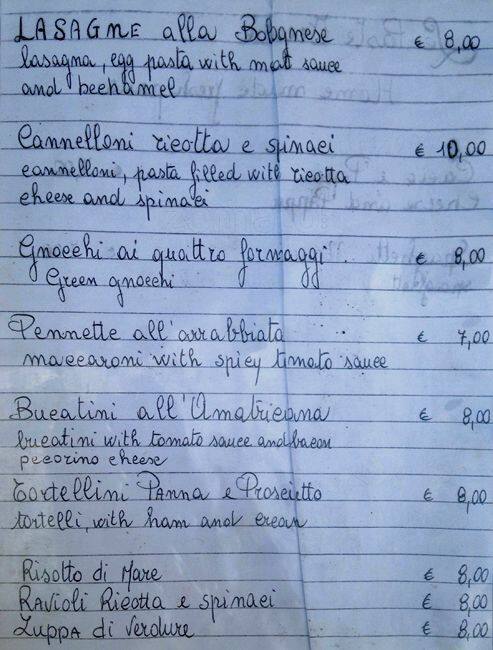 LASAGNE alla Bolognese € 8,00
lasagna, egg pasta with mat sauce
and beehamel
Cannelloni ricotta e spinaci € 10,00
cannelloni, pasta filled with ricotta
cheese and spinaci
Gnocchi ai quattro formaggi € 8,00
Green gnocchi
Pennette all'arrabbiata € 7,00
maccaroni with spicy tomato sauce
Bucatini all'Amatriciana € 8,00
bucatini with tomato sauce and bacon
pecorino cheese
Tortellini Panna e Prosciutto € 8,00
tortelli, with ham and cream
Risotto di Mare € 8,00
Ravioli Ricotta e spinaci € 8,00
Zuppa di Verdure € 8,00